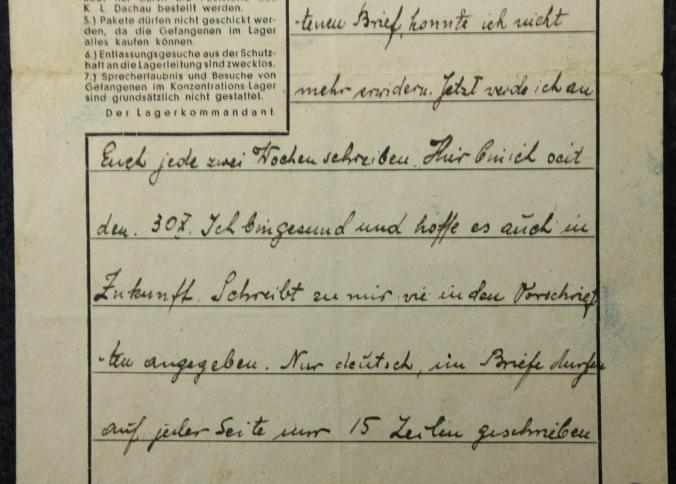 K. L. Dachau bestellt werden.
5.) Pakete dürfen nicht geschickt wer-
den, da die Gefangenen im Lager
alles kaufen können.
6.) Entlassungsgesuche aus der Schutz-
haft an die Lagerleitung sind zwecklos.
7.) Sprecherlaubnis und Besuche von
Gefangenen im Konzentrations-Lager
sind grundsätzlich nicht gestattet.
Der Lagerkommandant
-tenen Brief, konnte ich nicht
mehr erwidern. Jetzt werde ich an
Euch jede zwei Wochen schreiben. Hier bin ich seit
den. 30X. Ich bin gesund und hoffe es auch in
Zukunft. Schreibt zu mir, vie in den Vorschrif
-ten angegeben. Nur deutsch, im Briefe durfen
auf jeder Seite nur 15 Zeilen geschrieben